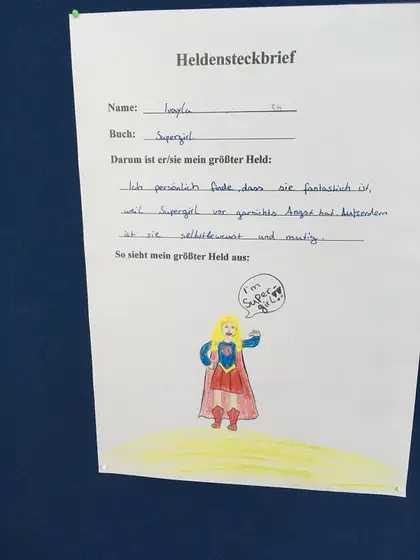 Heldensteckbrief
Name: Ivayla 5b
Buch: Supergirl
Darum ist er/sie mein größter Held:
Ich persönlich finde, dass sie fantastisch ist,
weil Supergirl vor garnichts Angst hat. Autserdem
ist sie selbstbewusst und mutig.
So sieht mein größter Held aus:
I'm
Super-
girl!